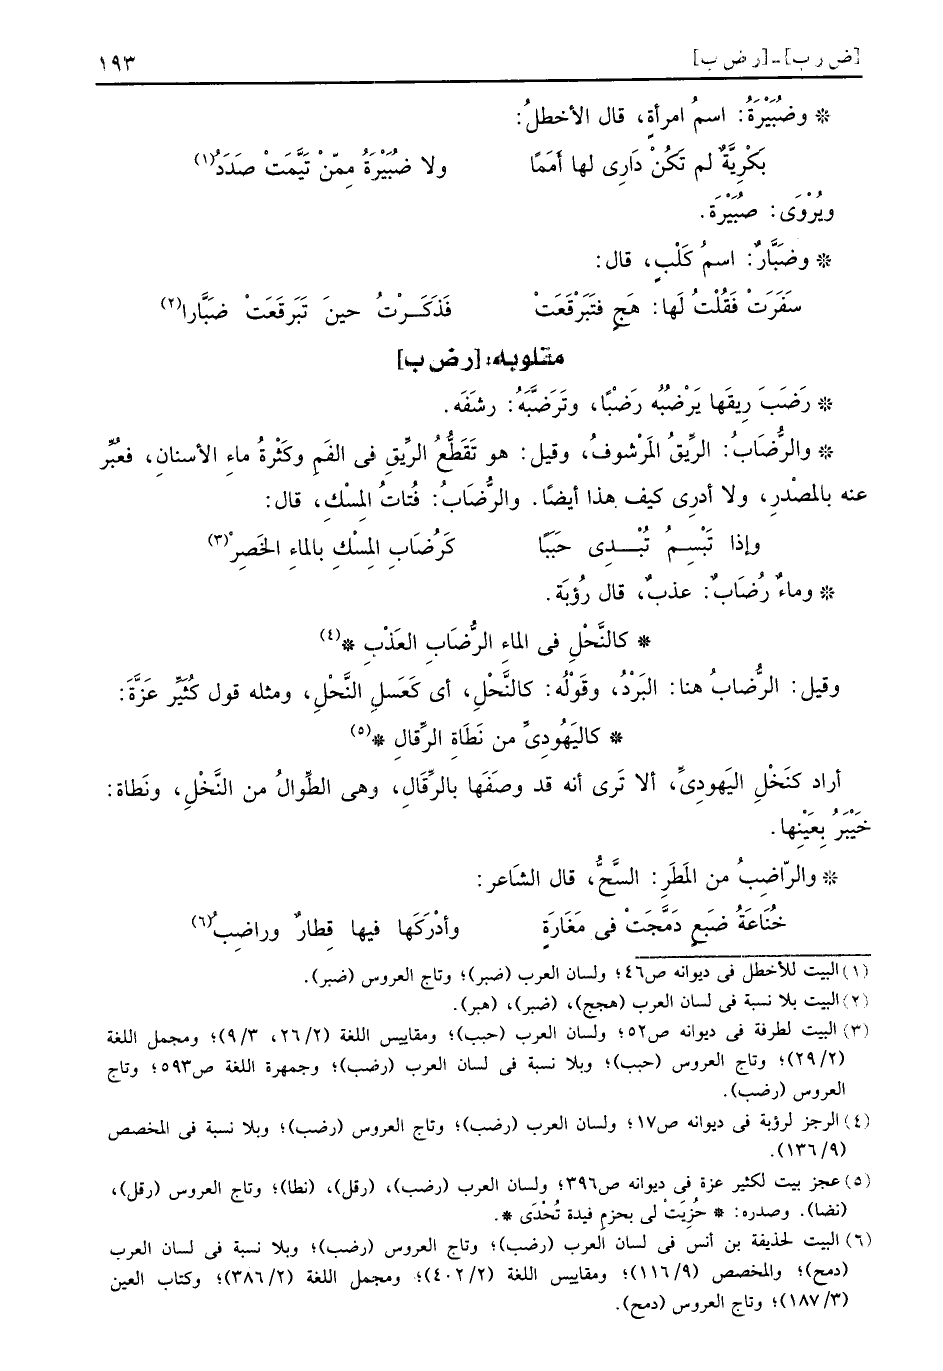 [ض ر ب] - [ر ض ب] ١٩٣
* وضُبَيْرَةُ: اسمُ امرأةٍ، قال الأخطلُ:
بَكْرِيَّةٌ لم تَكُنْ دَارِى لها أَمَمًا ولا ضُبَيْرَةُ مِمّنْ تَيَّمَتْ صَدَدُ(١)
ويُرْوَى: صُبَيْرَة.
* وضَبَّارٌ: اسمُ كَلْبٍ، قال:
سَفَرَتْ فَقُلْتُ لَها: هَجٍ فتَبَرْقَعَتْ فَذَكَـرْتُ حينَ تَبَرقَعَتْ ضَبَّارا(٢)
مقلوبه: [ر ض ب]
* رَضَبَ رِيقَها يَرْضُبُه رَضْبًا، وتَرَضَّبَهُ: رشَفَه.
* والرُّضَابُ: الرِّيقُ المَرْشوفُ، وقيل: هو تَقَطُّعُ الرِّيقِ فى الفَمِ وكَثْرةُ ماءِ الأسنانِ، فعبُّر
عنه بالمصْدرِ، ولا أدرى كيف هذا أيضًا. والرُّضَابُ: فُتاتُ المِسْك، قال:
وإذا تَبْسِـمُ تُبْـدِى حَبَبًا كَرُضَابِ المِسْكِ بالماءِ الخَصِرْ(٣)
* وماءٌ رُضَابٌ: عذبٌ، قال رُؤبَة.
* كالنَّحْلِ فى الماءِ الرُّضَابِ العَذْبِ *(٤)
وقيل: الرُّضابُ هنا: البَرْدُ، وقَوْلُه: كالنَّحْلِ، أى كَعَسلِ النَّحْلِ، ومثله قول كُثَيِّر عَزَّةَ:
* كاليَهُودِىِّ من نَطَاةِ الرِّقالِ *(٥)
أراد كنَخْلِ اليَهودِىِّ، ألا تَرى أنه قد وصَفَها بالرِّقَالِ، وهى الطِّوالُ من النَّخْلِ، ونَطاة:
خَيْبَرُ بِعَيْنِها.
* والرّاضِبُ من المَطَرِ: السَّحُّ، قال الشاعر:
خُنَاعَةُ ضَبعٍ دَمَّجَتْ فى مَغَارَةٍ وأدْرَكَها فيها قِطارٌ وراضِبُ(٦)
(١) البيت للأخطل فى ديوانه ص٤٦؛ ولسان العرب (ضبر)؛ وتاج العروس (ضبر).
(٢) البيت بلا نسبة فى لسان العرب (هجج)، (ضبر)، (هبر).
(٣) البيت لطرفة فى ديوانه ص٥٢؛ ولسان العرب (حبب)؛ ومقاييس اللغة (٢/ ٢٦، ٣/ ٩)؛ ومجمل اللغة
(٢/ ٢٩)؛ وتاج العروس (حبب)؛ وبلا نسبة فى لسان العرب (رضب)؛ وجمهرة اللغة ص٥٩٣؛ وتاج
العروس (رضب).
(٤) الرجز لرؤبة فى ديوانه ص١٧؛ ولسان العرب (رضب)؛ وتاج العروس (رضب)؛ وبلا نسبة فى المخصص
(٩/ ١٣٦).
(٥) عجز بيت لكثير عزة فى ديوانه ص٣٩٦؛ ولسان العرب (رضب)، (رقل)، (نطا)؛ وتاج العروس (رقل)،
(نضا). وصدره: * حُزِيَتْ لى بحزمِ فيدة تُحْدَى *.
(٦) البيت لحذيفة بن أنس فى لسان العرب (رضب)؛ وتاج العروس (رضب)؛ وبلا نسبة فى لسان العرب
(دمج)؛ والمخصص (٩/ ١١٦)؛ ومقاييس اللغة (٢/ ٤٠٢)؛ ومجمل اللغة (٢/ ٣٨٦)؛ وكتاب العين
(٣/ ١٨٧)؛ وتاج العروس (دمج).